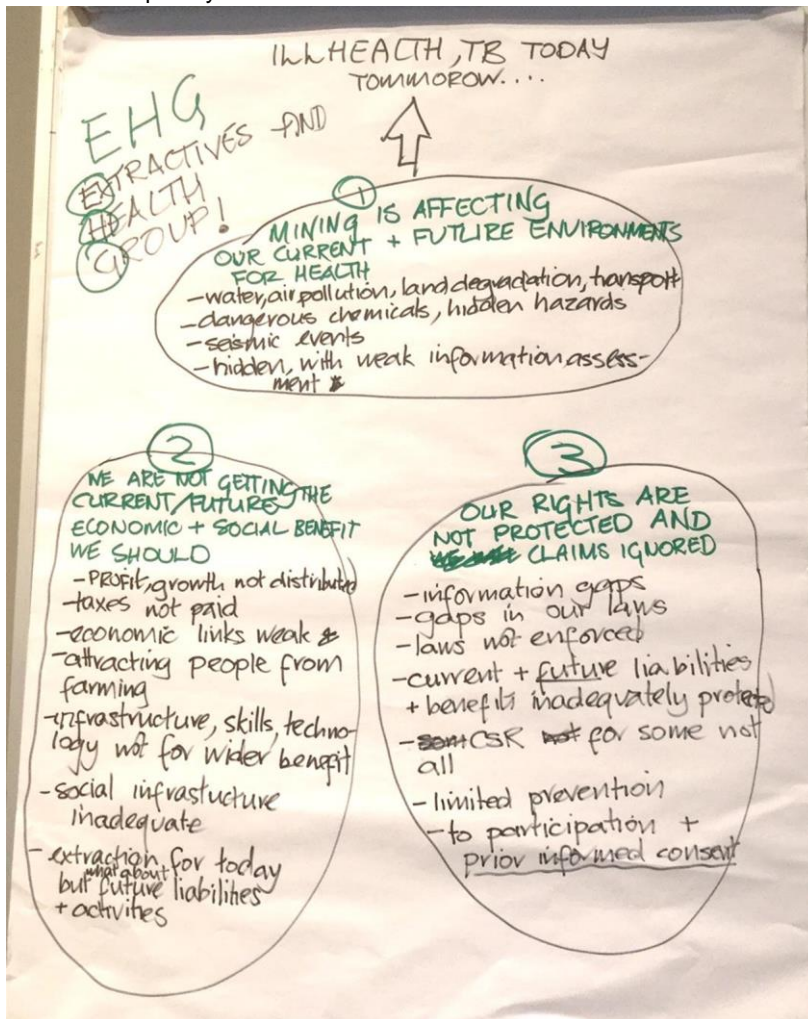 ILL HEALTH, TB TODAY
TOMMOROW....
EHG
EXTRACTIVES AND
HEALTH
GROUP!
1
MINING IS AFFECTING
OUR CURRENT + FUTURE ENVIRONMENTS
FOR HEALTH
-water, air pollution, land degradation, transport
-dangerous chemicals, hidden hazards
-seismic events
-hidden, with weak information, assess-
ment
2
WE ARE NOT GETTING THE
CURRENT/FUTURE
ECONOMIC + SOCIAL BENEFIT
WE SHOULD
-PROFIT, growth not distributed
-taxes not paid
-economic links weak &
-attracting people from
farming
-infrastructure, skills, techno-
logy not for wider benefit
-social infrastucture
inadequate
- extraction for today
what about
but future liabilities
+ activities
3
OUR RIGHTS ARE
NOT PROTECTED AND
CLAIMS IGNORED
-information gaps
-gaps in our laws
-laws not enforced
-current + future liabilities
+ benefits inadequately
-CSR for some not
all
-limited prevention
-to participation +
prior informed consent